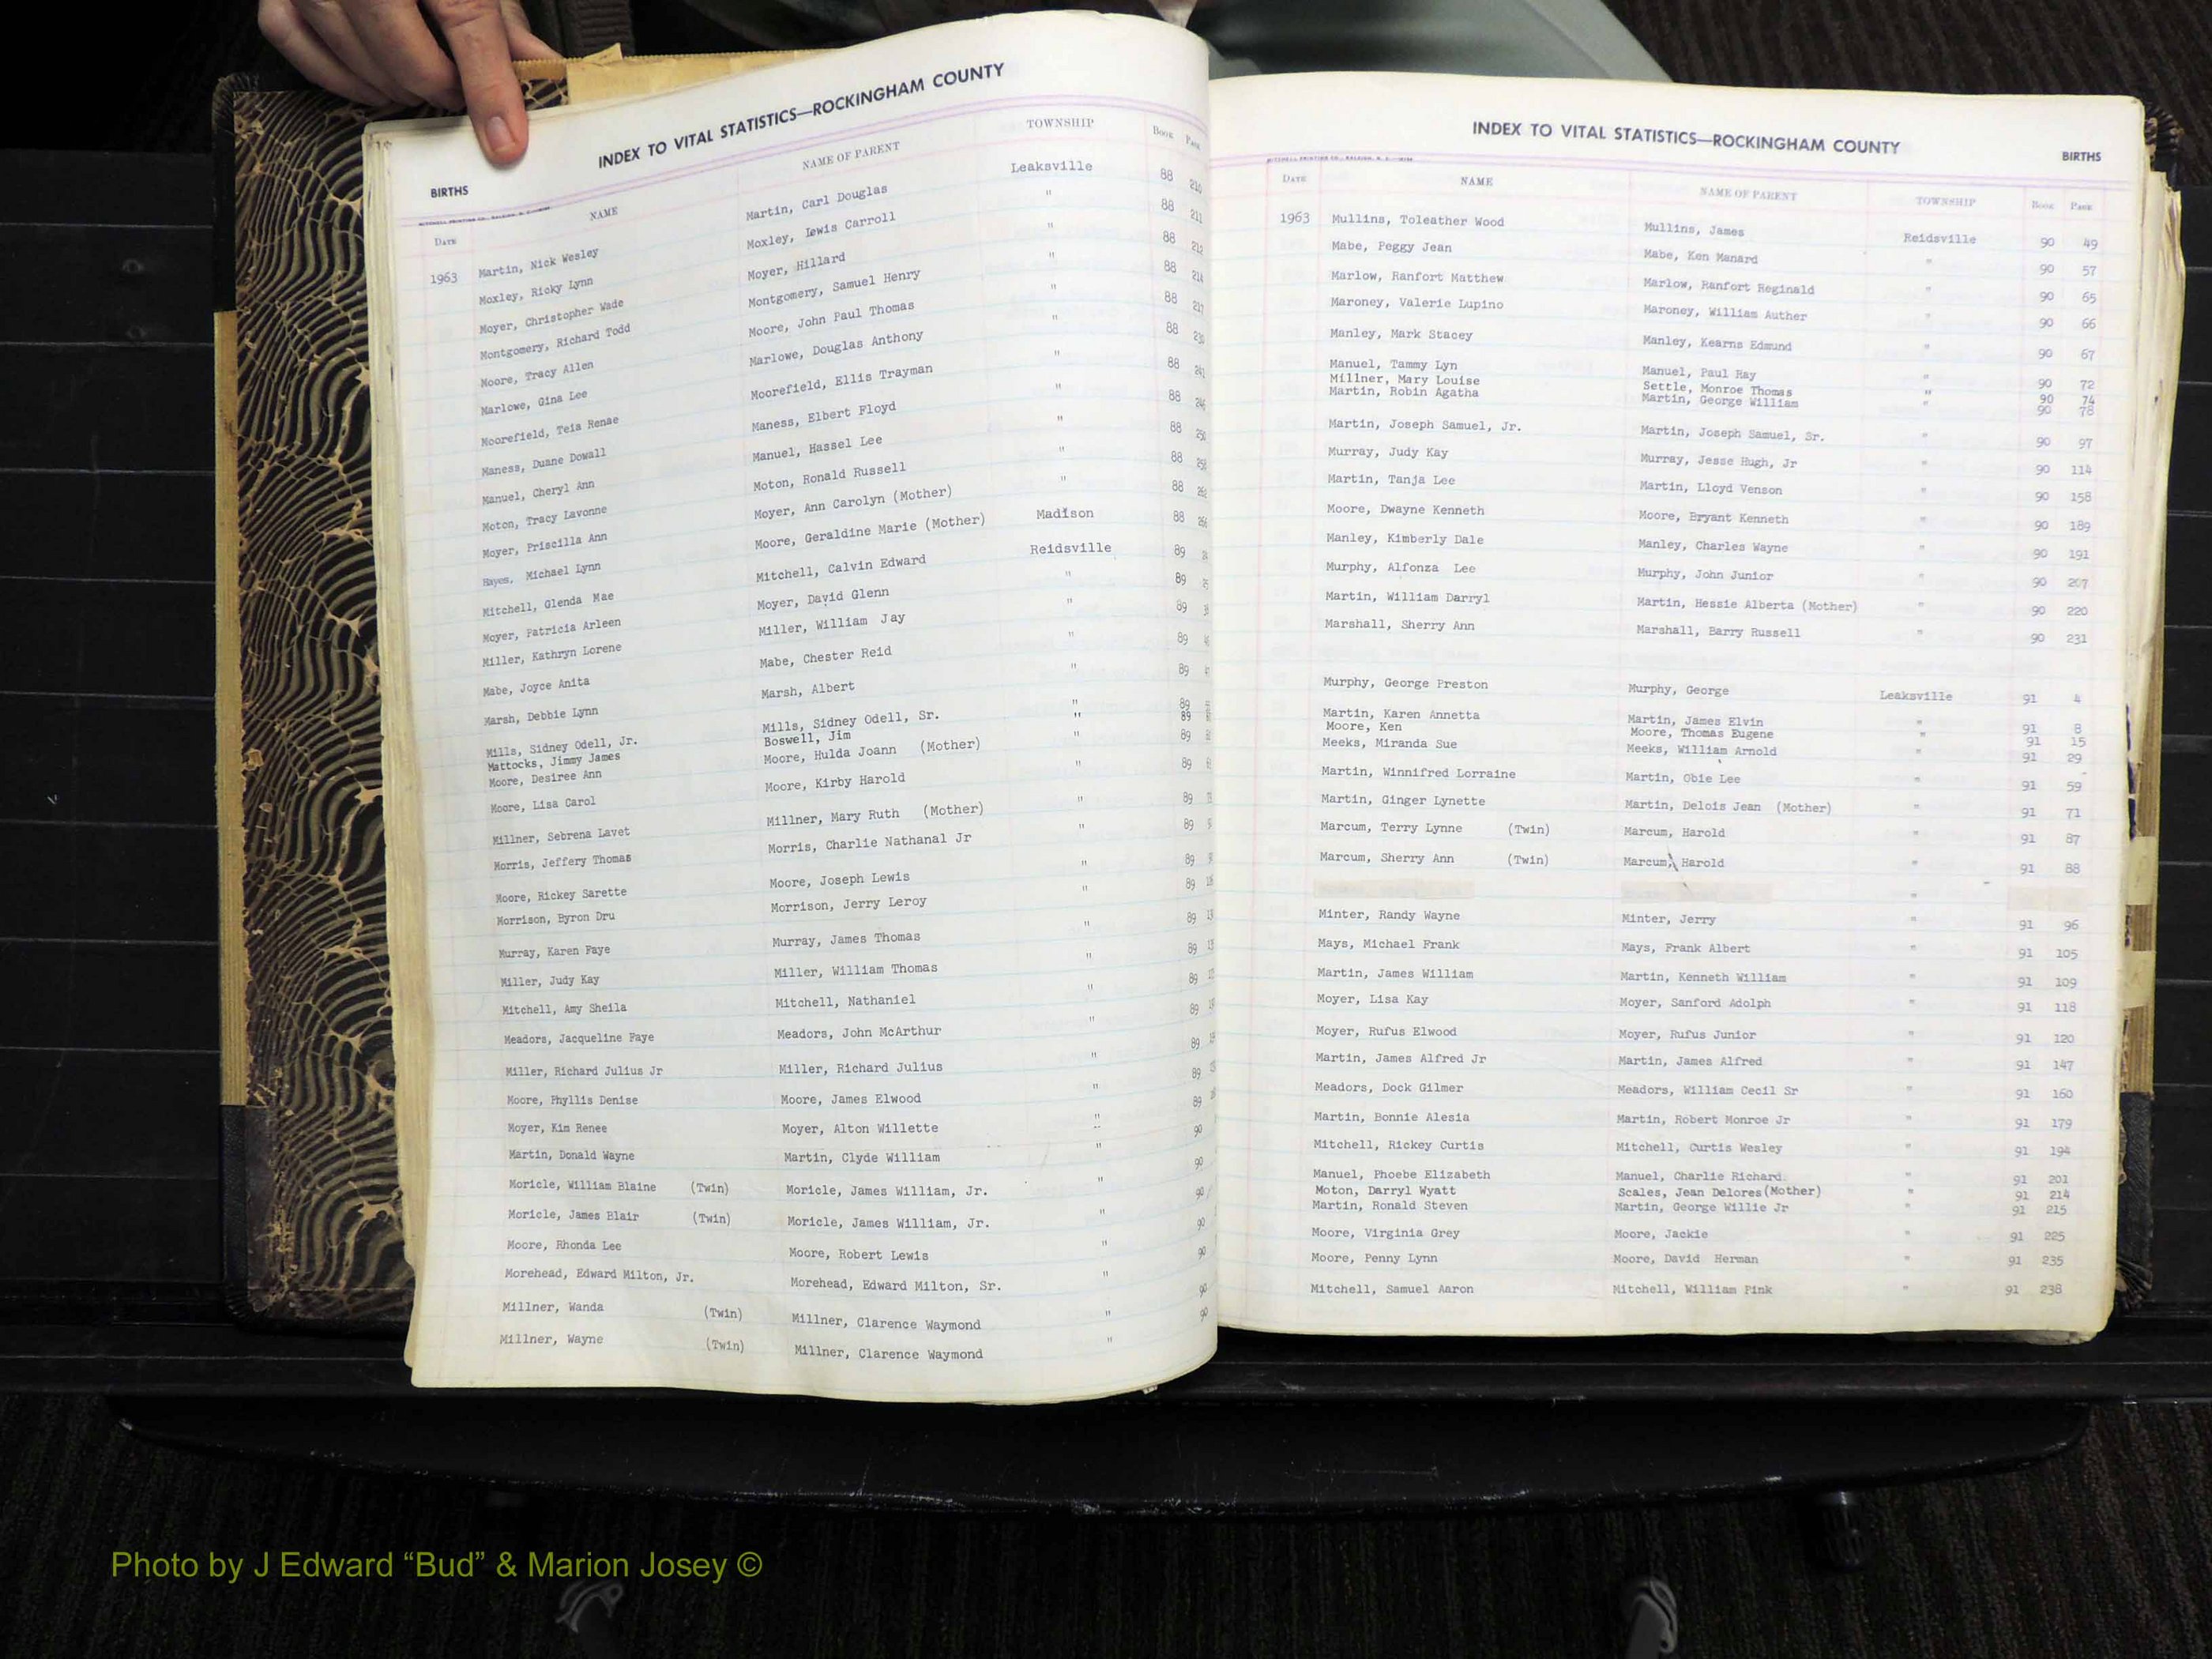 INDEX TO VITAL STATISTICS—ROCKINGHAM COUNTY
BIRTHS
DATE NAME NAME OF PARENT TOWNSHIP BOOK PAGE
1963 Martin, Nick Wesley Martin, Carl Douglas Leaksville 88 210
Moxley, Ricky Lynn Moxley, Lewis Carroll " 88 211
Moyer, Christopher Wade Moyer, Hillard " 88 212
Montgomery, Richard Todd Montgomery, Samuel Henry " 88 214
Moore, Tracy Allen Moore, John Paul Thomas " 88 217
Marlowe, Gina Lee Marlowe, Douglas Anthony " 88 230
Moorefield, Teia Renae Moorefield, Ellis Trayman " 88 241
Maness, Duane Dowall Maness, Elbert Floyd " 88 246
Manuel, Cheryl Ann Manuel, Hassel Lee " 88 250
Moton, Tracy Lavonne Moton, Ronald Russell " 88
Moyer, Priscilla Ann Moyer, Ann Carolyn (Mother) " 88
Hayes, Michael Lynn Moore, Geraldine Marie (Mother) Madison 88
Mitchell, Glenda Mae Mitchell, Calvin Edward Reidsville 89
Moyer, Patricia Arleen Moyer, David Glenn " 89
Miller, Kathryn Lorene Miller, William Jay " 89
Mabe, Joyce Anita Mabe, Chester Reid " 89
Marsh, Debbie Lynn Marsh, Albert " 89
Mills, Sidney Odell, Jr. Mills, Sidney Odell, Sr. " 89
Mattocks, Jimmy James Boswell, Jim " 89
Moore, Desiree Ann Moore, Hulda Joann (Mother) " 89
Moore, Lisa Carol Moore, Kirby Harold " 89
Millner, Sebrena Lavet Millner, Mary Ruth (Mother) " 89
Morris, Jeffery Thomas Morris, Charlie Nathanal Jr " 89
Moore, Rickey Sarette Moore, Joseph Lewis " 89
Morrison, Byron Dru Morrison, Jerry Leroy " 89
Murray, Karen Faye Murray, James Thomas " 89
Miller, Judy Kay Miller, William Thomas " 89
Mitchell, Amy Sheila Mitchell, Nathaniel " 89
Meadors, Jacqueline Faye Meadors, John McArthur " 89
Miller, Richard Julius Jr Miller, Richard Julius " 89
Moore, Phyllis Denise Moore, James Elwood " 89
Moyer, Kim Renee Moyer, Alton Willette " 89
Martin, Donald Wayne Martin, Clyde William " 90
Moricle, William Blaine (Twin) Moricle, James William, Jr. " 90
Moricle, James Blair (Twin) Moricle, James William, Jr. " 90
Moore, Rhonda Lee Moore, Robert Lewis " 90
Morehead, Edward Milton, Jr. Morehead, Edward Milton, Sr. " 90
Millner, Wanda (Twin) Millner, Clarence Waymond " 90
Millner, Wayne (Twin) Millner, Clarence Waymond " 90
INDEX TO VITAL STATISTICS—ROCKINGHAM COUNTY
BIRTHS
DATE NAME NAME OF PARENT TOWNSHIP BOOK PAGE
1963 Mullins, Toleather Wood Mullins, James Reidsville 90 49
Mabe, Peggy Jean Mabe, Ken Manard " 90 57
Marlow, Ranfort Matthew Marlow, Ranfort Reginald " 90 65
Maroney, Valerie Lupino Maroney, William Auther " 90 66
Manley, Mark Stacey Manley, Kearns Edmund " 90 67
Manuel, Tammy Lyn Manuel, Paul Ray " 90 72
Millner, Mary Louise Settle, Monroe Thomas " 90 74
Martin, Robin Agatha Martin, George William " 90 78
Martin, Joseph Samuel, Jr. Martin, Joseph Samuel, Sr. " 90 97
Murray, Judy Kay Murray, Jesse Hugh, Jr " 90 114
Martin, Tanja Lee Martin, Lloyd Venson " 90 158
Moore, Dwayne Kenneth Moore, Bryant Kenneth " 90 189
Manley, Kimberly Dale Manley, Charles Wayne " 90 191
Murphy, Alfonza Lee Murphy, John Junior " 90 207
Martin, William Darryl Martin, Hessie Alberta (Mother) " 90 220
Marshall, Sherry Ann Marshall, Barry Russell " 90 231
Murphy, George Preston Murphy, George Leaksville 91 4
Martin, Karen Annetta Martin, James Elvin " 91 8
Moore, Ken Moore, Thomas Eugene " 91 15
Meeks, Miranda Sue Meeks, William Arnold " 91 29
Martin, Winnifred Lorraine Martin, Obie Lee " 91 59
Martin, Ginger Lynette Martin, Delois Jean (Mother) " 91 71
Marcum, Terry Lynne (Twin) Marcum, Harold " 91 87
Marcum, Sherry Ann (Twin) Marcum, Harold " 91 88
"
Minter, Randy Wayne Minter, Jerry " 91 96
Mays, Michael Frank Mays, Frank Albert " 91 105
Martin, James William Martin, Kenneth William " 91 109
Moyer, Lisa Kay Moyer, Sanford Adolph " 91 118
Moyer, Rufus Elwood Moyer, Rufus Junior " 91 120
Martin, James Alfred Jr Martin, James Alfred " 91 147
Meadors, Dock Gilmer Meadors, William Cecil Sr " 91 160
Martin, Bonnie Alesia Martin, Robert Monroe Jr " 91 179
Mitchell, Rickey Curtis Mitchell, Curtis Wesley " 91 194
Manuel, Phoebe Elizabeth Manuel, Charlie Richard. " 91 201
Moton, Darryl Wyatt Scales, Jean Delores(Mother) " 91 214
Martin, Ronald Steven Martin, George Willie Jr " 91 215
Moore, Virginia Grey Moore, Jackie " 91 225
Moore, Penny Lynn Moore, David Herman " 91 235
Mitchell, Samuel Aaron Mitchell, William Pink " 91 238
Photo by J Edward “Bud” & Marion Josey ©